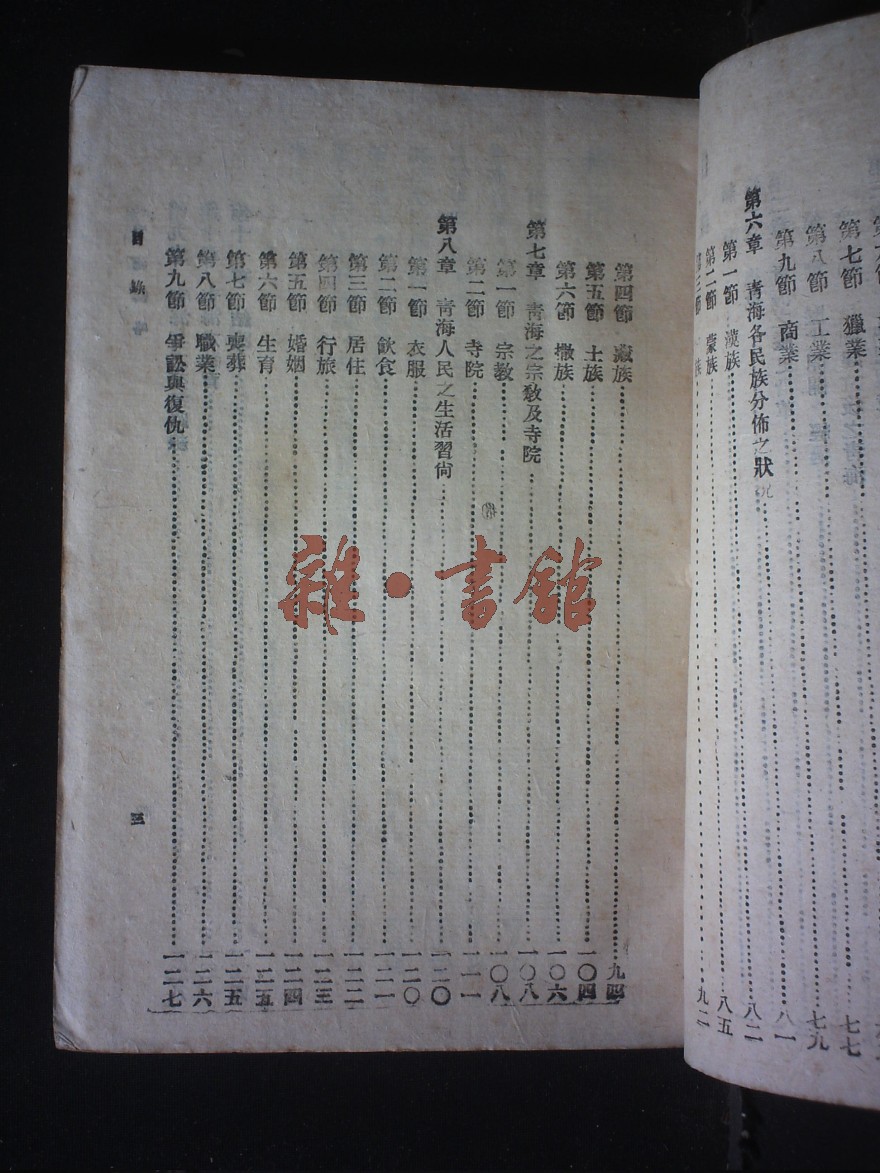 第七節 獵業 七七
第八節 工業 七九
第九節 商業 八一
第六章 青海各民族分佈之狀況 八二
第一節 漢族 八五
第二節 蒙族 九二
第四節 藏族 九四
第五節 土族 一〇四
第六節 撒族 一〇六
第七章 青海之宗敎及寺院 一〇八
第一節 宗敎 一〇八
第二節 寺院 一一一
第八章 靑海人民之生活習尙 一二〇
第一節 衣服 一二〇
第二節 飮食 一二一
第三節 居住 一二二
第四節 行旅 一二三
第五節 婚姻 一二四
第六節 生育 一二五
第七節 喪葬 一二五
第八節 職業 一二六
第九節 爭訟與復仇 一二七
目錄
三
雜·書館